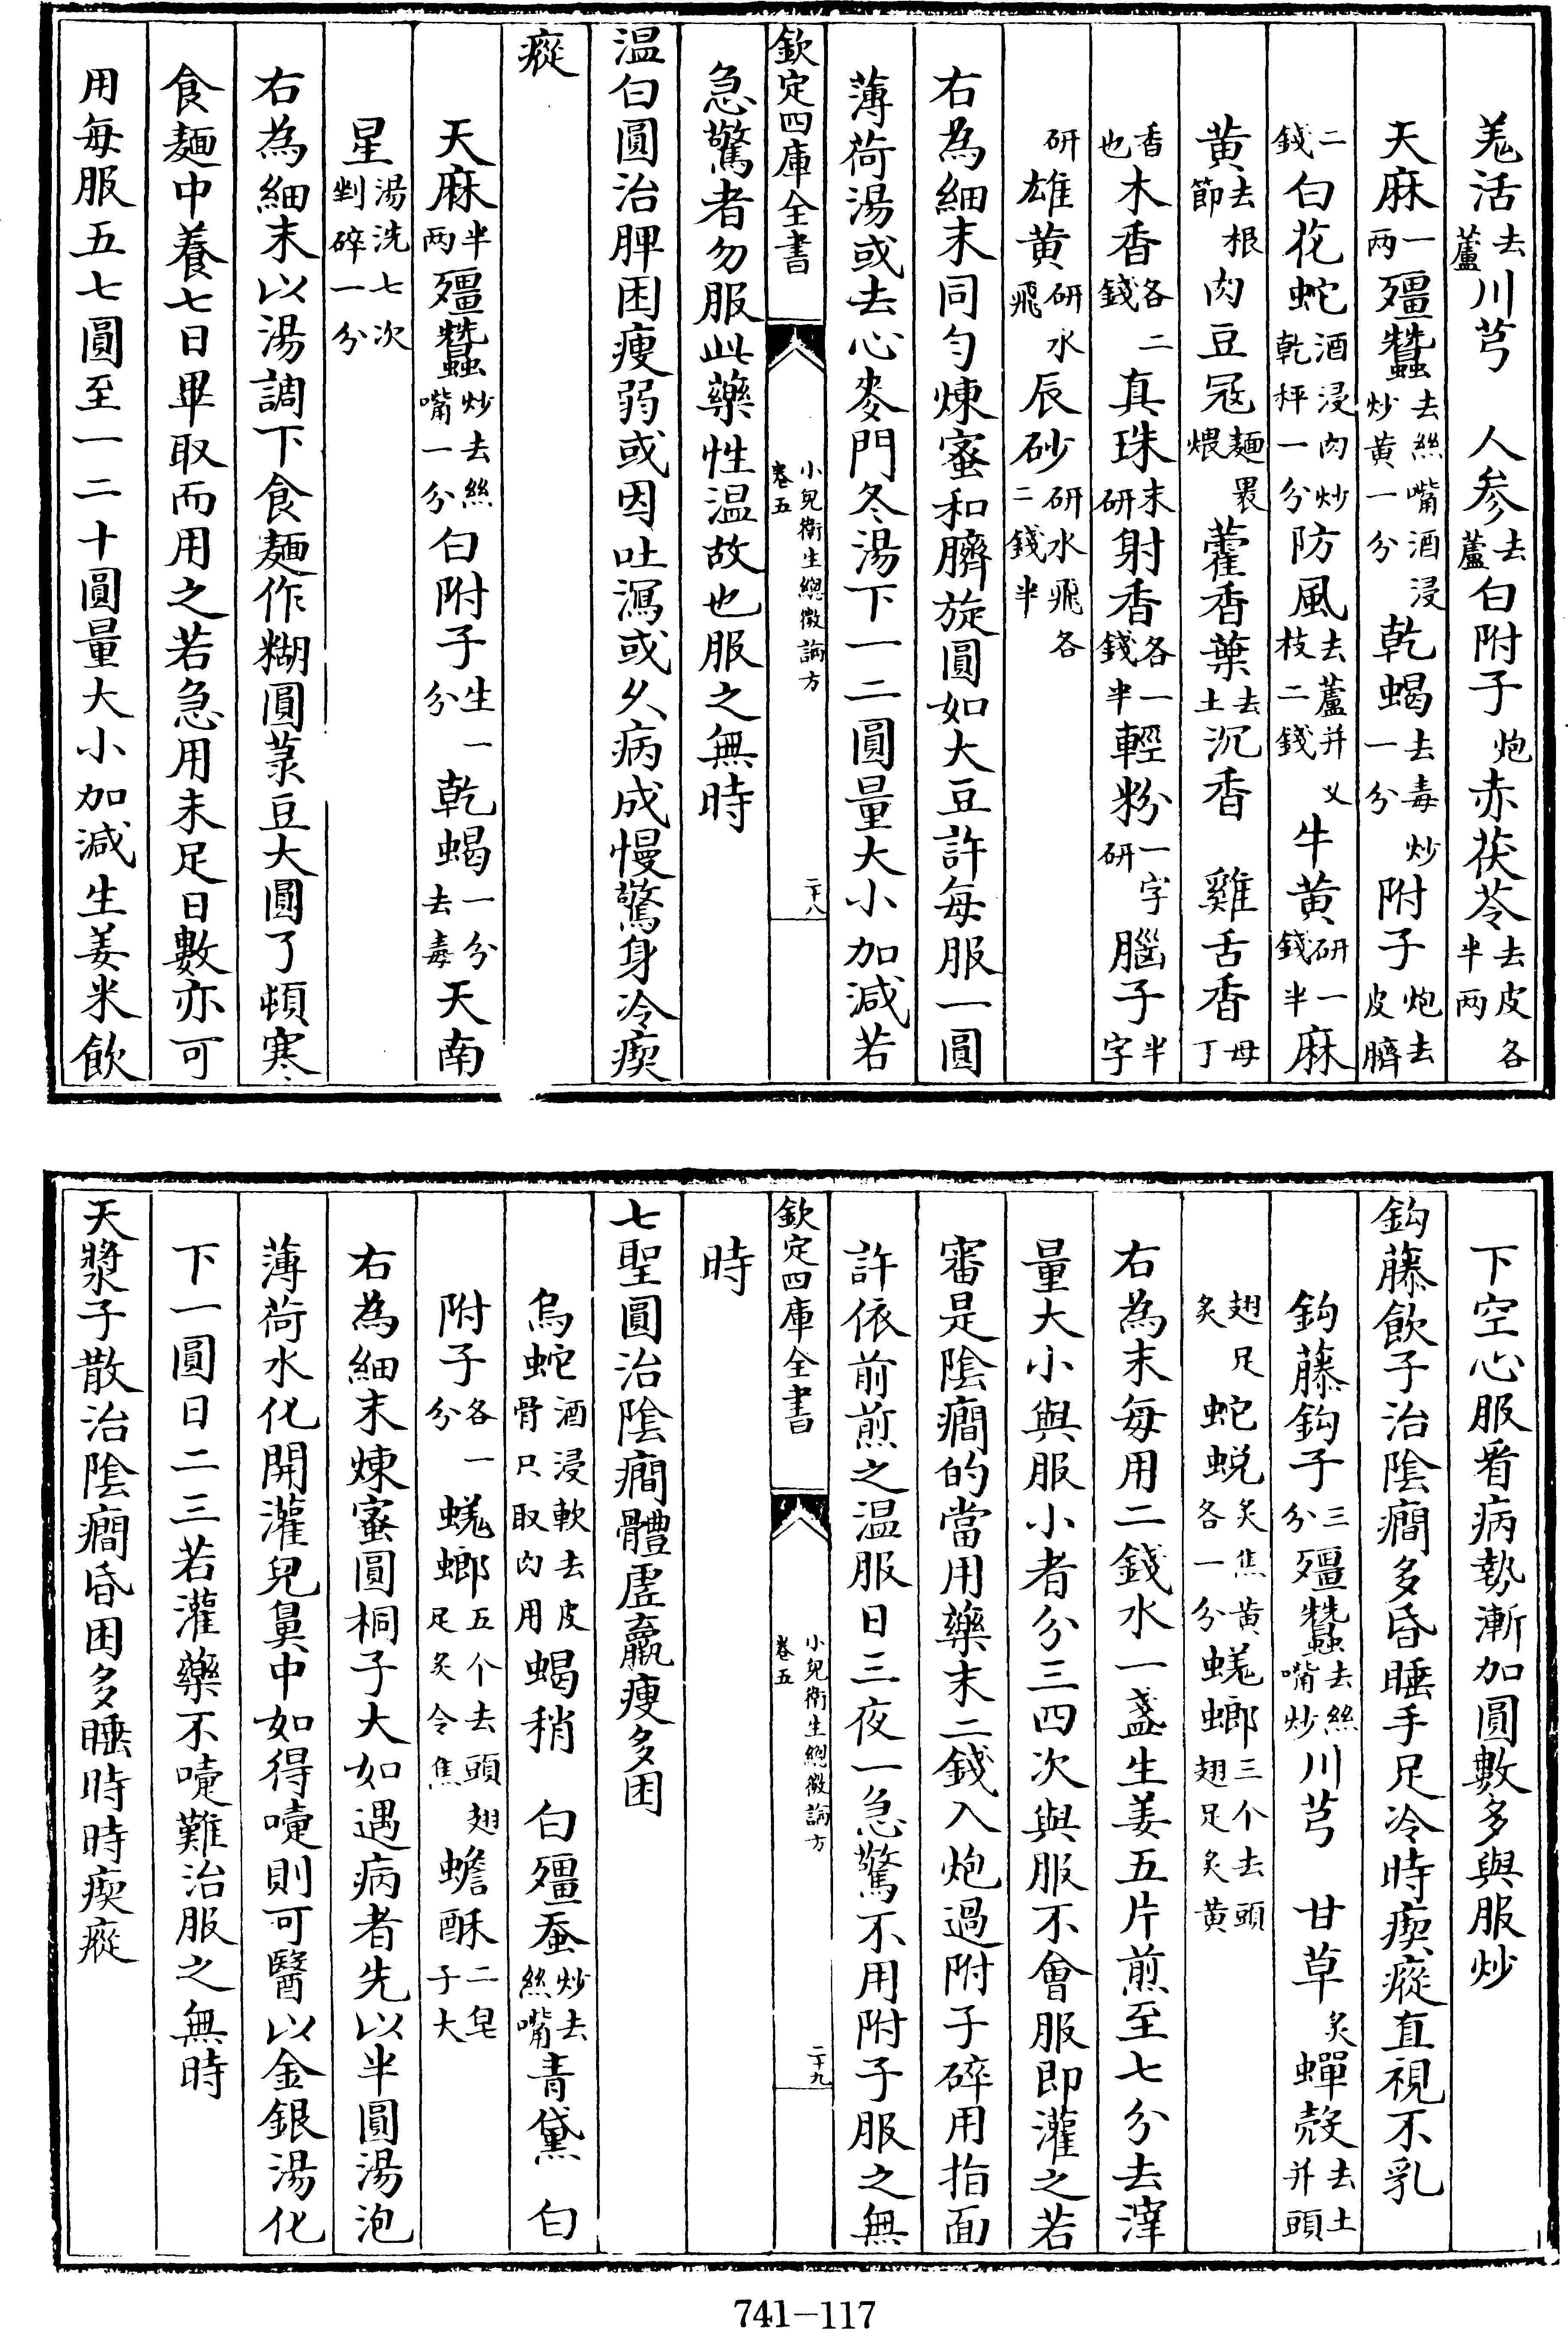 羌活去蘆川芎　人參去蘆白附子炮赤茯苓去皮各半兩
天麻一兩殭蠶去絲嘴酒浸炒黄一分乾蝎去毒炒一分附子炮去皮臍
二錢白花蛇酒浸肉炒乾秤一分防風去蘆并义枝二錢牛黄研一錢半麻
黄去根節肉豆蔻麵裹煨藿香葉去土沉香　雞舌香母丁
香也木香各二錢真珠末研射香各一錢半輕粉一字研腦子半字
研雄黄研水飛辰砂研水飛各二錢半
右為細末同勻煉蜜和臍旋圓如大豆許每服一圓
薄荷湯或去心麥門冬湯下一二圓量大小加減若
欽定四庫全書　小兒衛生總微論方卷五　二十八
急驚者勿服此藥性温故也服之無時
温白圓治脾困瘦弱或因吐瀉或久病成慢驚身冷瘈
瘲
天麻半兩殭蠶炒去絲嘴一分白附子生一分乾蝎一分去毒天南
星湯洗七次剉碎一分
右為細末以湯調下食麵作糊圓菉豆大圓了頓寒
食麵中養七日畢取而用之若急用未足日數亦可
用每服五七圓至一二十圓量大小加減生姜米飲
下空心服看病勢漸加圓數多與服炒
鈎藤飲子治陰癎多昏睡手足冷時瘈瘲直視不乳
鈎藤鈎子三分殭蠶去絲嘴炒川芎　甘草炙蟬殻去土并頭
翅足炙蛇蛻炙焦黄各一分蜣螂三个去頭翅足炙黄
右為末每用二錢水一盞生姜五片煎至七分去滓
量大小與服小者分三四次與服不會服即灌之若
審是陰癎的當用藥末二錢入炮過附子碎用指面
許依前煎之温服日三夜一急驚不用附子服之無
欽定四庫全書　小兒衛生總微論方卷五　二十九
時
七聖圓治陰癎體虛羸瘦多困
烏蛇酒浸軟去皮骨只取肉用蝎稍　白殭蚕炒去絲嘴青黛　白
附子各一分蜣螂五个去頭翅足炙令焦蟾酥二皂子大
右為細末煉蜜圓桐子大如遇病者先以半圓湯泡
薄荷水化開灌兒鼻中如得嚏則可醫以金銀湯化
下一圓日二三若灌藥不嚏難治服之無時
天漿子散治陰癎昏困多睡時時瘈瘲
741-117